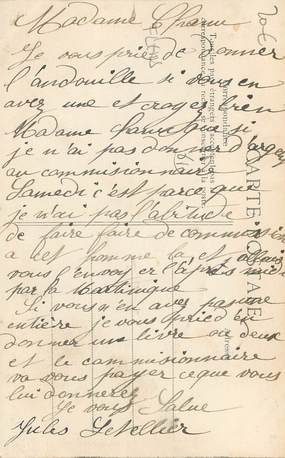 Madame Charue
Je vous prie de donner
l'andouille si vous en
avez une et croyez bien
Madame Charue que si
je n'ai pas donner d'argent
au commissionnaire
Samedi c'est parce que
je n'ai pas l'abitude
de faire faire de commission
a cet homme la et
vous l'envoyer l'après midi
par la Martinique
Si vous n'en avez pas une
entière je vous prie d'en
donner un livre ou deux
et le commissionnaire
va vous payer ce que vous
lui donnerez
Je vous Salue
Jules Letellier
CARTE POSTALE